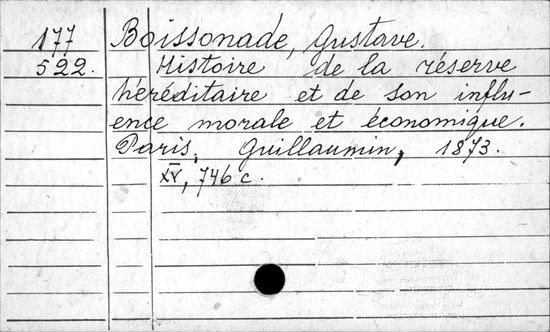 177 Boissonade, Gustave.
522. Histoire de la réserve
héréditaire et de son influ-
ence morale et économique.
Paris, Guillaumin, 1873.
XV, 746 c.